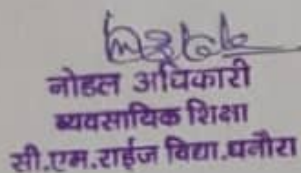 नोडल अधिकारी
व्यवसायिक शिक्षा
सी.एम.राईज विद्या.घनौरा